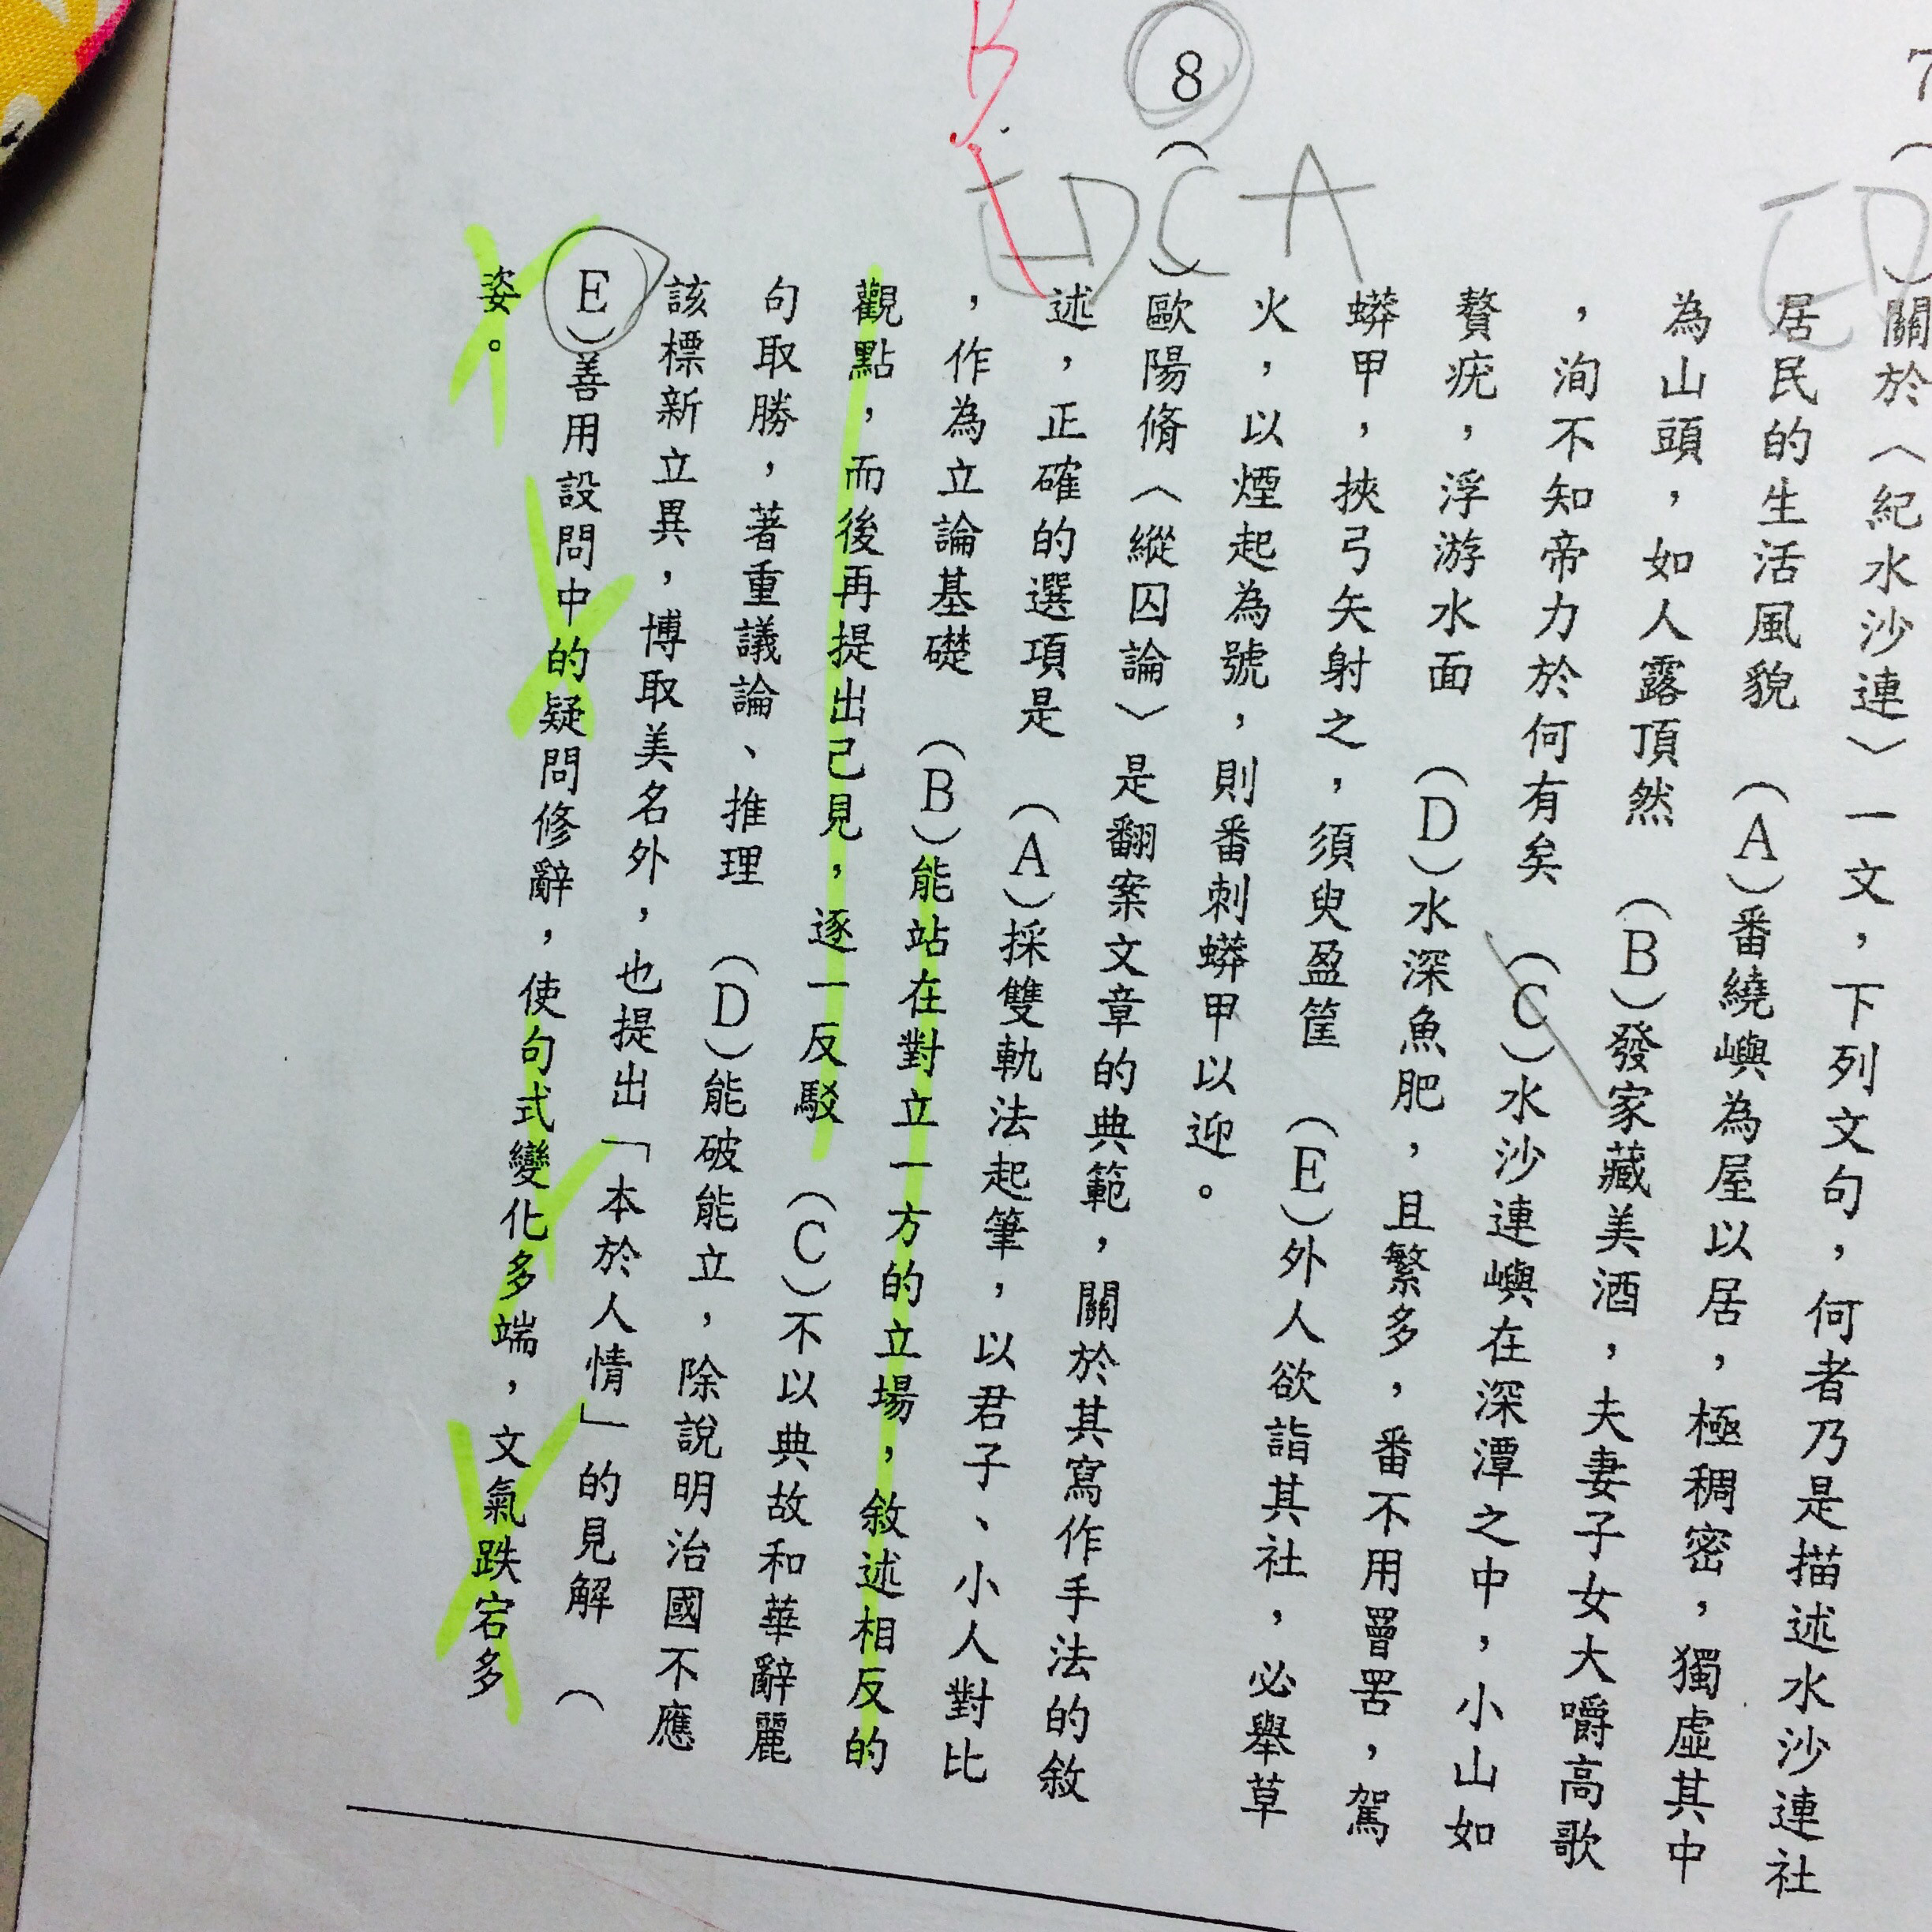 7（ ）關於〈紀水沙連〉一文，下列文句，何者乃是描述水沙連社
ED
居民的生活風貌　（A）番繞嶼為屋以居，極稠密，獨虛其中
為山頭，如人露頂然　（B）發家藏美酒，夫妻子女大嚼高歌
，洵不知帝力於何有矣　（C）水沙連嶼在深潭之中，小山如
贅疣，浮游水面　（D）水深魚肥，且繁多，番不用罾罟，駕
蟒甲，挾弓矢射之，須臾盈筐　（E）外人欲詣其社，必舉草
火，以煙起為號，則番刺蟒甲以迎。
8（ ）歐陽脩〈縱囚論〉是翻案文章的典範，關於其寫作手法的敘
A
C
D
E
B
述，正確的選項是　（A）採雙軌法起筆，以君子、小人對比
，作為立論基礎　（B）能站在對立一方的立場，敘述相反的
觀點，而後再提出己見，逐一反駁　（C）不以典故和華辭麗
句取勝，著重議論、推理　（D）能破能立，除說明治國不應
該標新立異，博取美名外，也提出「本於人情」的見解　（
E）善用設問中的疑問修辭，使句式變化多端，文氣跌宕多
姿。